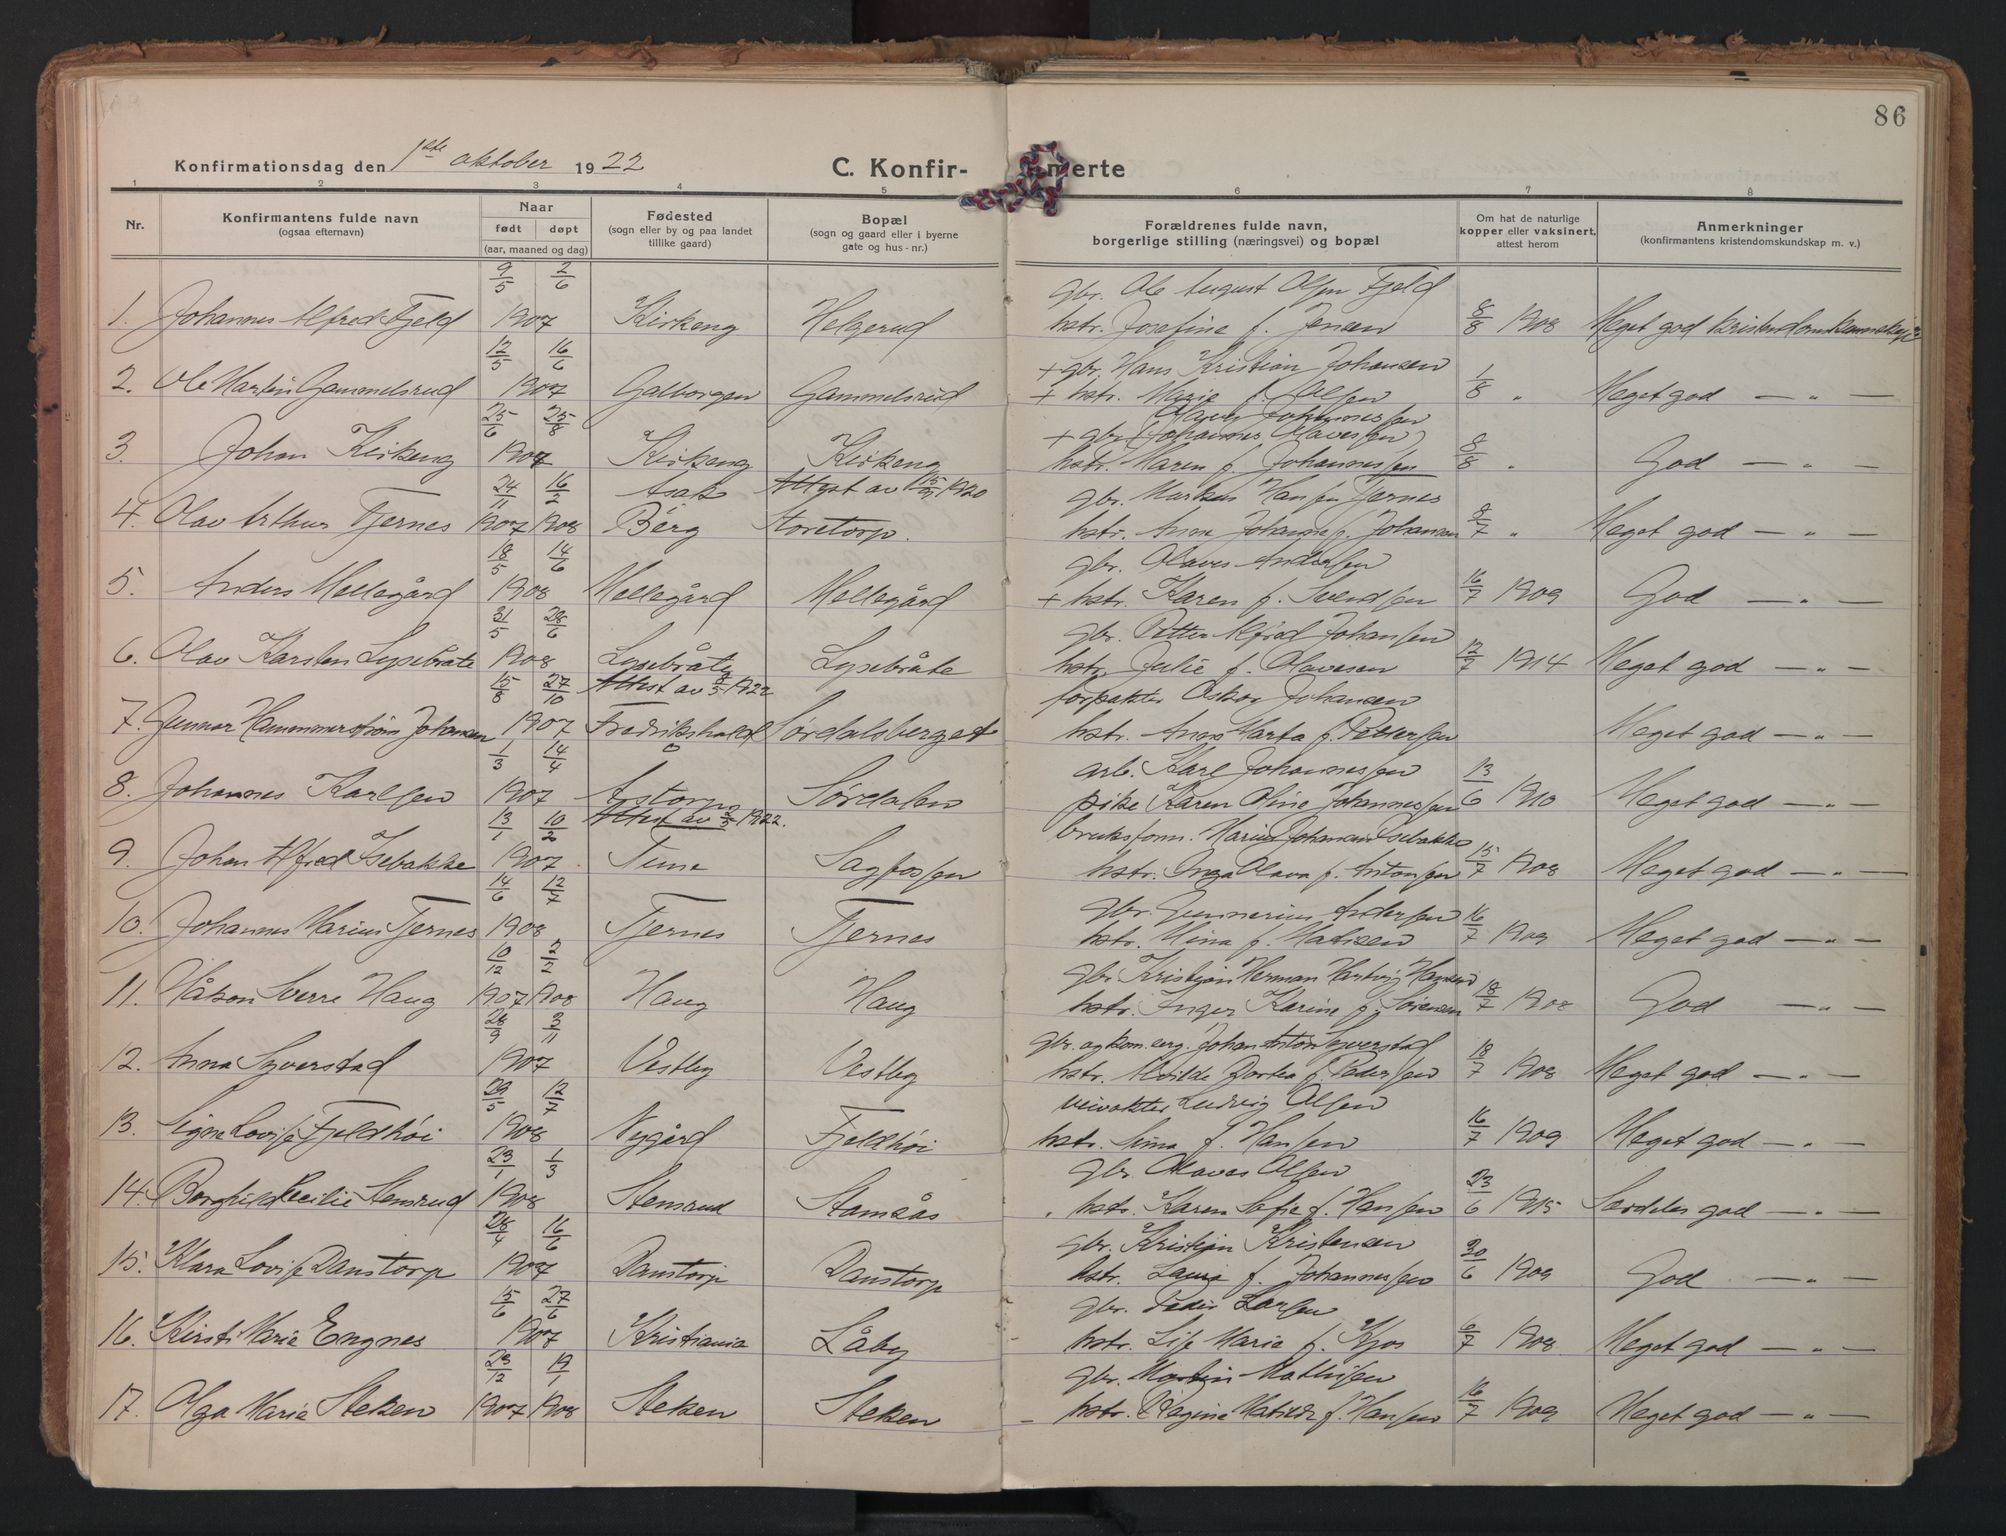 86
Konfirmationsdag den 1ste oktober 1922
C. Konfirmerte
1 2 3 4 5 6 7 8
Nr.
Konfirmantens fulde navn (ogsaa efternavn)
Naar født døpt (aar, maaned og dag)
Fødested (sogn eller by og paa landet tillike gaard)
Bopæl (sogn og gaard eller i byerne gate og hus-nr.)
Forældrenes fulde navn, borgerlige stilling (næringsvei) og bopæl
Om hat de naturlige kopper eller vaksinert, attest herom
Anmerkninger (konfirmantens kristendomskundskap m. v.)
9/5 2/6 gbr. Ole August Olsen Fjeld
1. Johannes Alfred Fjeld 1907 Kirkeng Helgerud hstr. Josefine f. Jensen 8/8 1908 Meget god kristendomskunnskap
12/5 16/6 + gbr. Hans Kristian Johansen
2. Ole Martin Gammelsrud 1907 Galborgen Gammelsrud + hstr. Marie f. Olsen 1/8 " Meget god — " —
25/6 25/8 + gbr. (Johannes Olavessen)
3. Johan Kirkeng 1907 Kirkeng Kirkeng hstr. Maren f. Johannessen 8/8 " God — " —
24/11 16/2 Asak Attest av 1920 gbr. Markus Hansen Tjernes
4. Olav Arthur Tjernes 1907 1908 Berg Storetorp. hstr. Anna Johanne f. Johansen 8/7 " Meget god — " —
18/5 14/6 gbr. Olaves Andersen
5. Anders Mellegård 1908 Mellegård Mellegård + hstr. Karen f. Svendsen 16/7 1909 God — " —
31/5 28/6 gbr. Petter Alfred Johansen
6. Olav Karsten Lysebråte 1908 Lysebråte Lysebråte hstr. Julie f. Olavesen 12/7 1914 Meget god — " —
15/8 27/10 Attest av 1922 forpakter Oskar Johansen
7. Gunnar Hammerstrøm Johansen 1907 Fredrikshald Sørdalsberget hstr. Anna Marta f. Pettersen Meget god — " —
1/3 14/4 arb. Karl Johannessen
8. Johannes Karlsen 1907 Åstorp Sørdalen pike Karen Oline Johannessen 13/6 1910 Meget god — " —
13/1 10/2 Attest av 1922. bruksform. Marius Johansen Isebakke
9. Johan Alfred Isebakke 1907 Tune Sagfossen hstr. Inga Olava f. Antonsen 15/7 1908 Meget god — " —
14/6 12/7 gbr. Gunnerius Andersen
10. Johannes Marius Tjernes 1908 Tjernes Tjernes hstr. Mina f. Matisen 16/7 1909 Meget god — " —
10/12 2/2 gbr. Kristian Herman Hartvig Hansen
11. Håkon Sverre Haug 1907 1908 Haug Haug hstr. Inger Karine f. Sørensen 18/7 1908 God — " —
28/9 3/11 gbr. og kom. erg. Johan Anton Syverstad
12. Anna Syverstad 1907 Vestby Vestby hstr. Alvilde Dortea f. Pedersen 18/7 1908 Meget god — " —
29/5 12/7 veivokter Ludvig Olsen
13. Signe Lovise Fjeldhøi 1908 Nygård Fjeldhøi hstr. f. Hansen 16/7 1909 Meget god — " —
23/1 1/3 gbr. Olaves Olsen
14. Borghild Cecilie Stensrud 1908 Stensrud Stamsås hstr. Karen Sofie f. Hansen 23/6 1915 Særdeles god — " —
28/4 16/6 gbr. Kristian Kristensen
15. Klara Lovise Danstorp 1907 Danstorp Danstorp hstr. Laura f. Johannessen 30/6 1909 God — " —
15/6 27/6 gbr. Peder Larsen
16. Kirsti Marie Engnes 1907 Kristiania Låby hstr. Lise Marie f. Kjos 6/7 1908 Meget god — " —
23/12 19/1 gbr. Martin Mathisen
17. Olga Marie Steken 1907 1908 Steken Steken hstr. Regine Matilde f. Hansen 16/7 1909 Meget god — " —